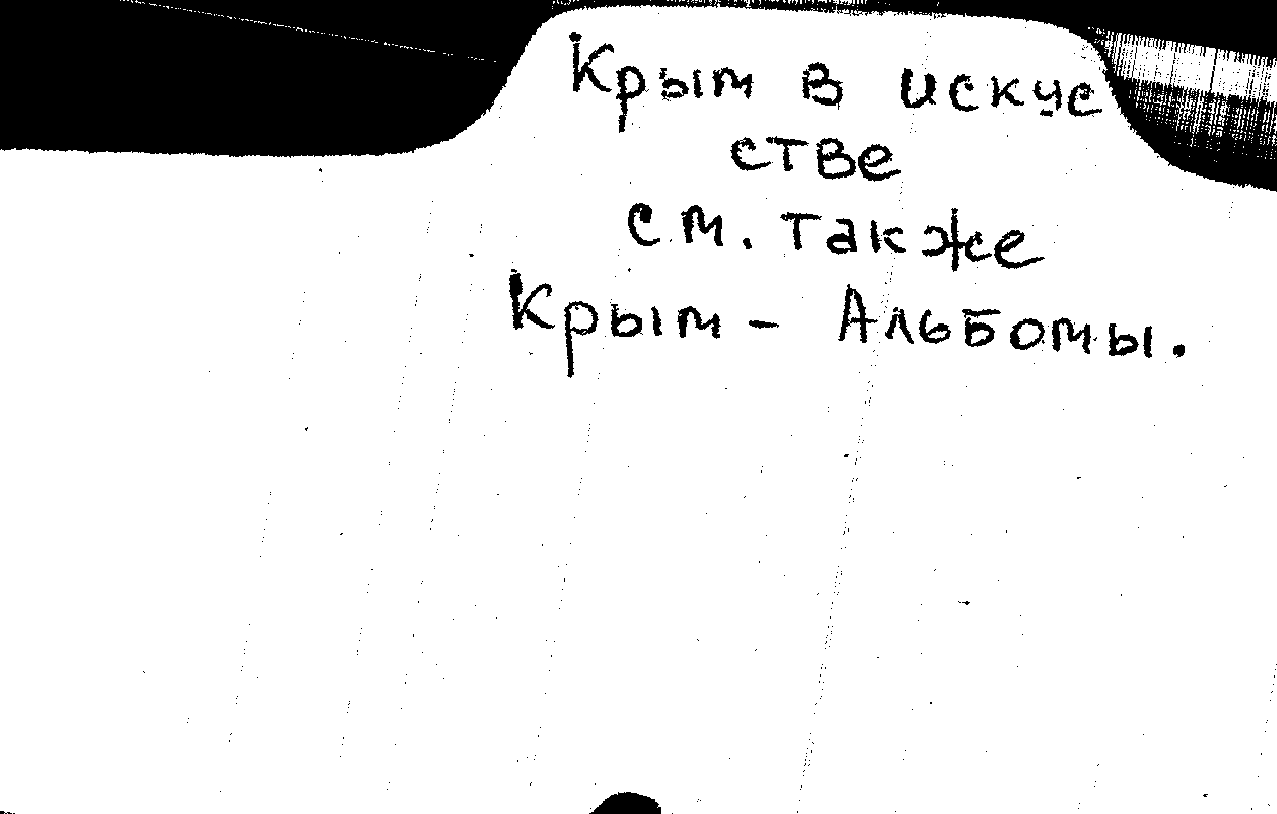 Крым в искус
стве
см. также
Крым - Альбомы.